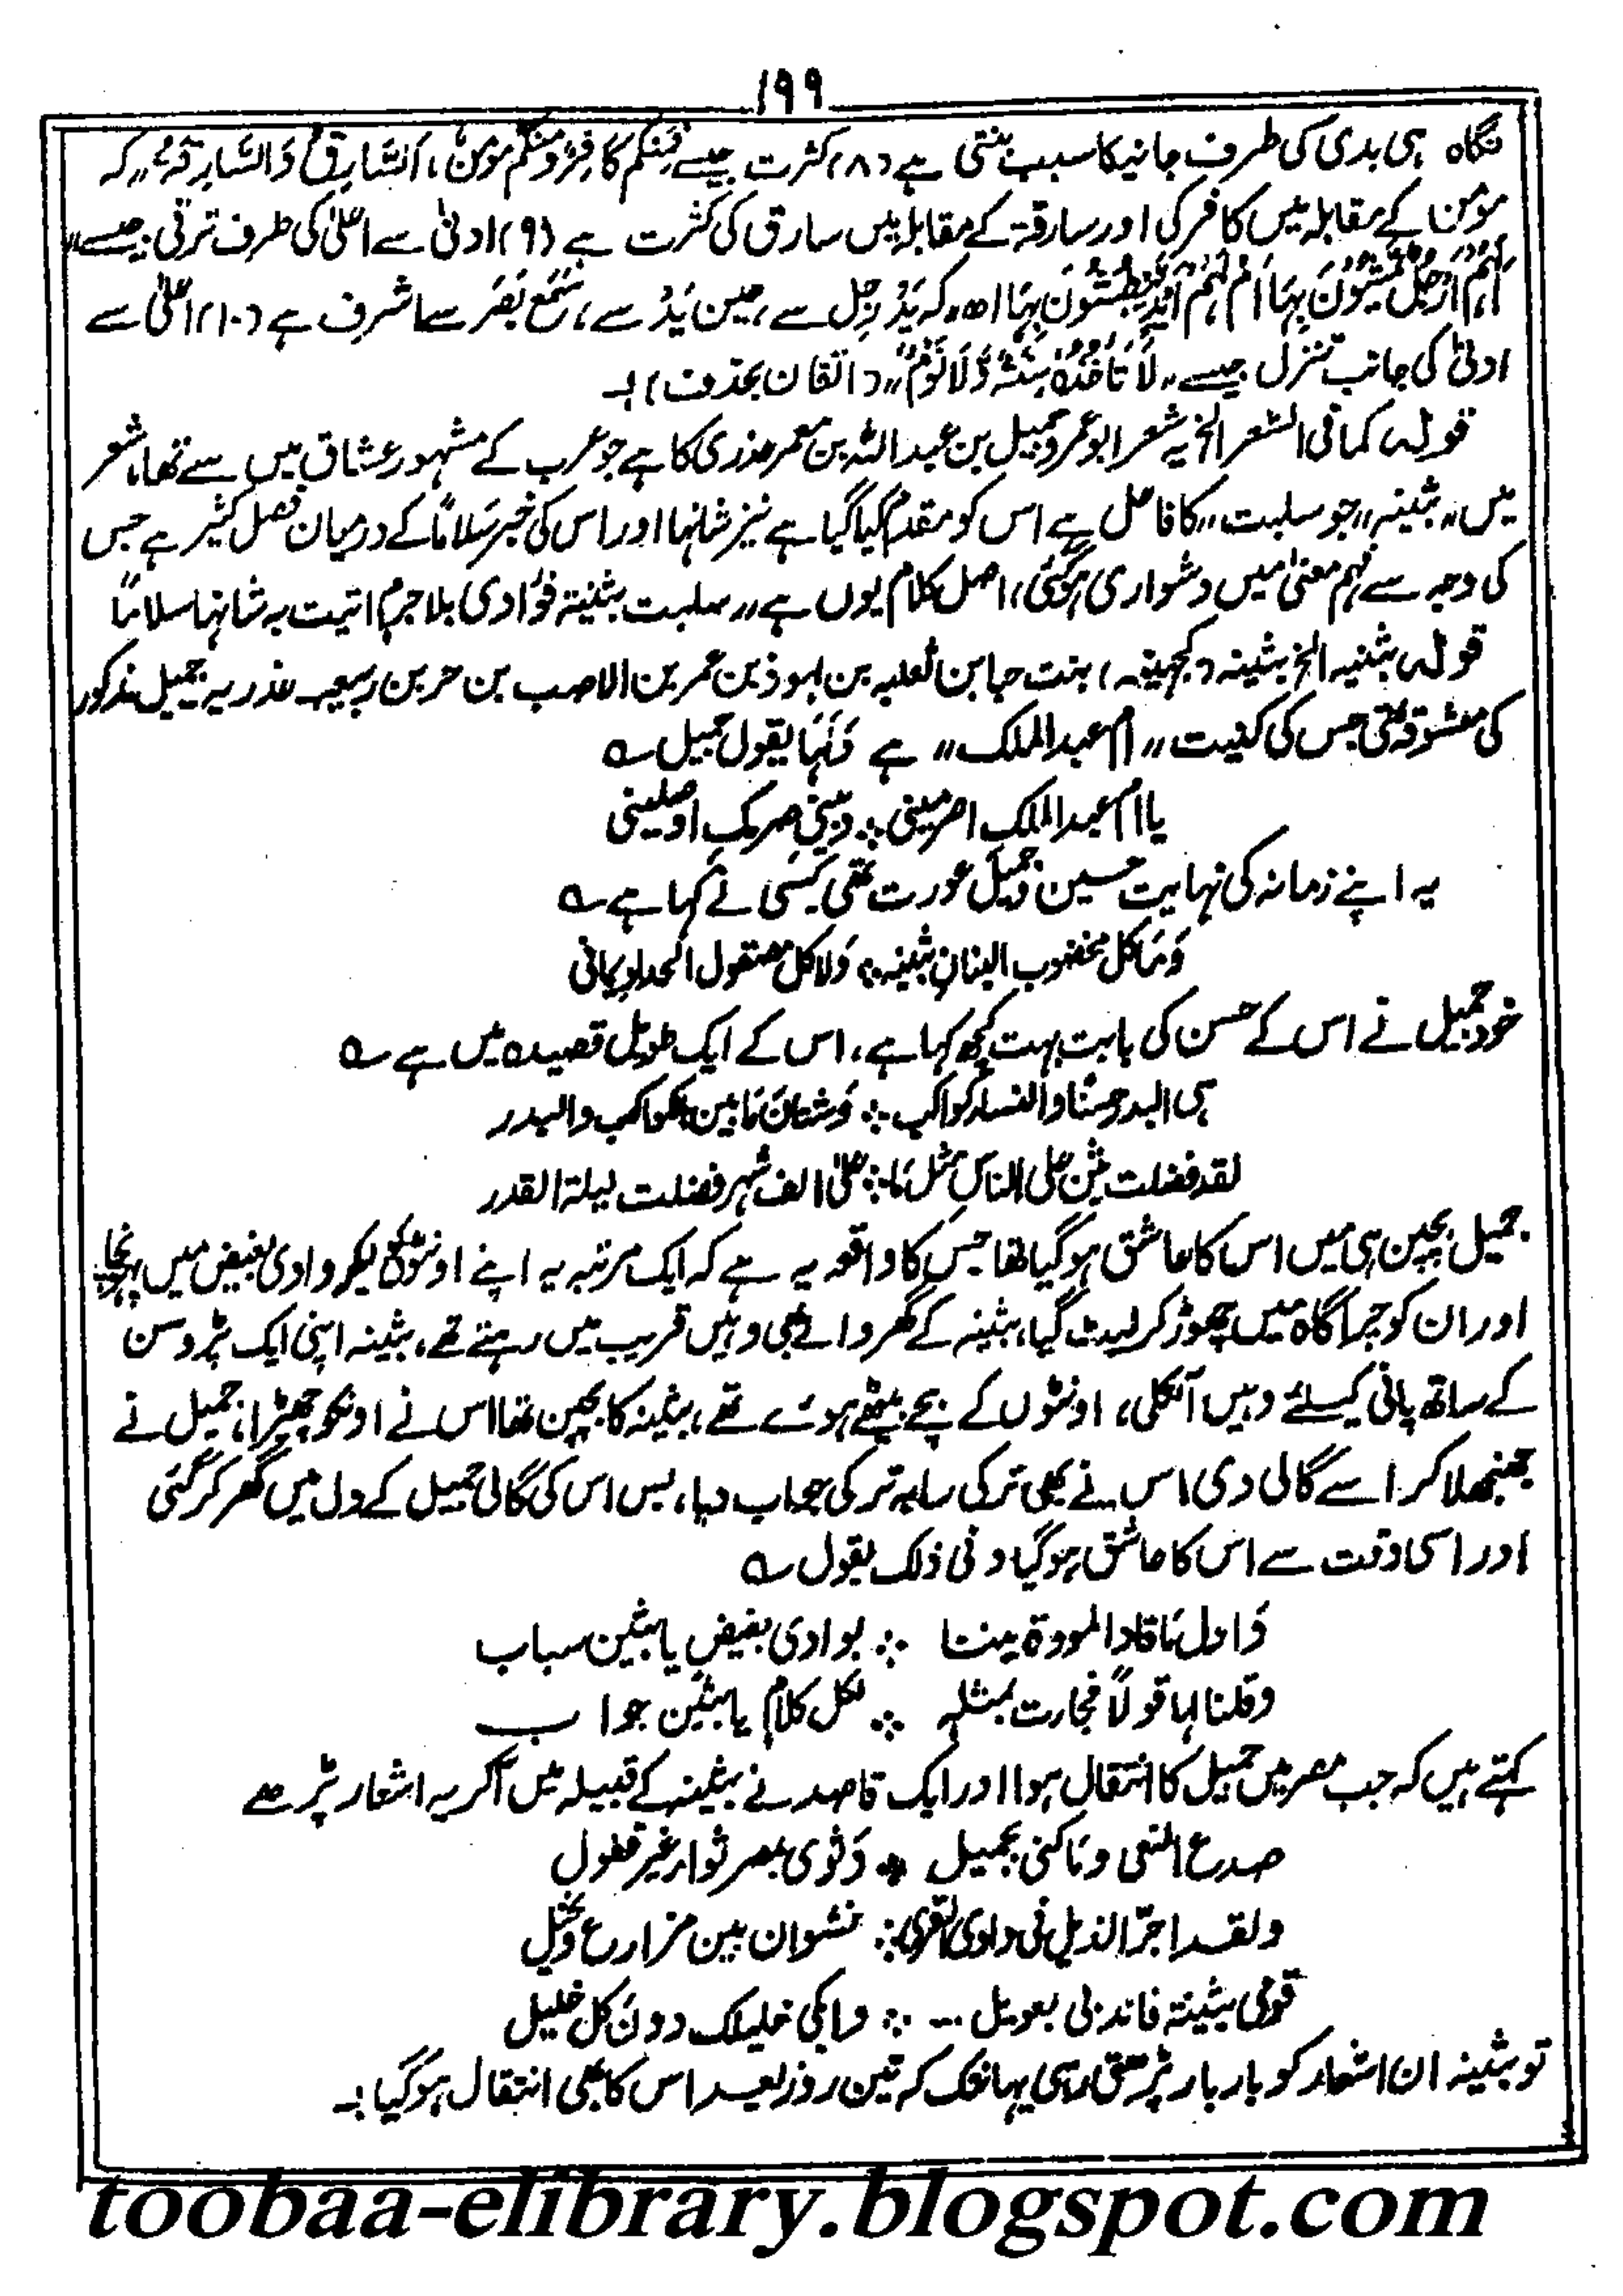 ۱۹۹
نگاہ ہی بدی کی طرف جانیکا سبب بنتی ہے (۸) کثرت جیسے فَمِنْکُم کَافِرٌ وَّمِنْکُم مُؤمِنٌ، اَلسَّارِقُ وَالسَّارِقَۃُ،، کہ
مؤمن کے مقابلہ میں کافر کی اور سارقۃ کے مقابلہ میں سارق کی کثرت ہے (۹) ادنیٰ سے اعلیٰ کی طرف ترقی جیسے،،
اَلَہُمْ اَرْجُلٌ یَّمْشُوْنَ بِہَا اَمْ لَہُمْ اَیْدٍ یَّبْطِشُوْنَ بِہَا اھ،، کہ یَدْ رِجل سے، عین یَدْ سے، سَمْع بَصَر سے اشرف ہے (۱۰) اعلیٰ سے
ادنیٰ کی جانب تنزل جیسے ،،لَا تَاْخُذُہٗ سِنَۃٌ وَّلَا نَوْمٌ،، (اتقان بحذف)۔
قولہ کمافی الشعر الخ یہ شعر ابوعمرو جمیل بن عبداللہ بن معمر عذری کا ہے جو عرب کے مشہور عشاق میں سے تھا، شعر
میں ،،بثینہ،، جو سلبت ،، کا فاعل ہے اس کو مقدم کیا گیا ہے نیز شانہا اور اس کی خبر سَلاماً کے درمیان فصل کثیر ہے جس
کی وجہ سے فہم معنیٰ میں دشواری ہوگئی، اصل کلام یوں ہے ،،سلبت بثینۃ فؤادی بلا جرم اتیت بہ شانہا سلاماً
قولہ بثنیہ الخ بثینہ (کجہینہ) بنت حبا بن ثعلبہ بن ہوذ بن عمر بن الاحب بن حر بن ربیعہ عذریہ جمیل مذکور
کی معشوقہ تھی جس کی کنیت ،،ام عبدالملک،، ہے وَلَہَا یقول جمیل ؎
یا ام عبدالملک اصرمینی ؞ وبینی صرمک اوصلینی
یہ اپنے زمانہ کی نہایت حسین وجمیل عورت تھی کسی نے کہا ہے ؎
وَمَا کل مخضوب البنانِ بثینہ ؞ وَلا کل مصقول الحدید یمانی
خود جمیل نے اس کے حسن کی بابت بہت کچھ کہا ہے، اس کے ایک طویل قصیدہ میں ہے ؎
ہی البدر حسنًا والنساء کواکب ؞ وَشتانَ مَا بین الکواکب والبدر
لقد فضلت بثن علی الناس مثل مَا ؞ علیٰ الف شہر فضلت لیلۃ القدر
جمیل بچپن ہی میں اس کا عاشق ہوگیا تھا جس کا واقعہ یہ ہے کہ ایک مرتبہ یہ اپنے اونٹوں کو لیکر وادی بغیض میں پہنچا
اور ان کو چراگاہ میں چھوڑ کر لیٹ گیا، بثینہ کے گھر والے بھی وہیں قریب میں رہتے تھے، بثینہ اپنی ایک پڑوسن
کے ساتھ پانی کیلئے وہیں آنکلی، اونٹوں کے بچے بیٹھے ہوئے تھے، بثینہ کا بچپن تھا اس نے اونکو چھیڑا، جمیل نے
جھنجھلا کر اسے گالی دی اس نے بھی ترکی بہ ترکی جواب دیا، بس اس کی گالی جمیل کے دل میں گھر کر گئی
اور اسی وقت سے اس کا عاشق ہوگیا وفی ذلک یقول ؎
وَاول مَا قاد المودۃ بیننا ؞ بوادی بغیضٍ یا بثین سباب
وقلنا لہا قولاً فجارت بمثلہ ؞ لکل کلام یا بثین جواب
کہتے ہیں کہ جب مصر میں جمیل کا انتقال ہوا اور ایک قاصد نے بثینہ کے قبیلہ میں آکر یہ اشعار پڑھے
صدع النعی ومَا کنی بجمیل ؞ وَثوی بمصر ثوار غیر قفول
ولقد اجرّ الذیل فی وادی القریٰ ؞ نشوان بین مزارع ونخیل
قومی بثینۃ فاندبی بعویل ... ؞ وابکی خلیلک دونَ کل خلیل
تو بثینہ ان اشعار کو بار بار پڑھتی رہی یہانتک کہ تین روز بعد اس کا بھی انتقال ہوگیا۔
toobaa-elibrary.blogspot.com